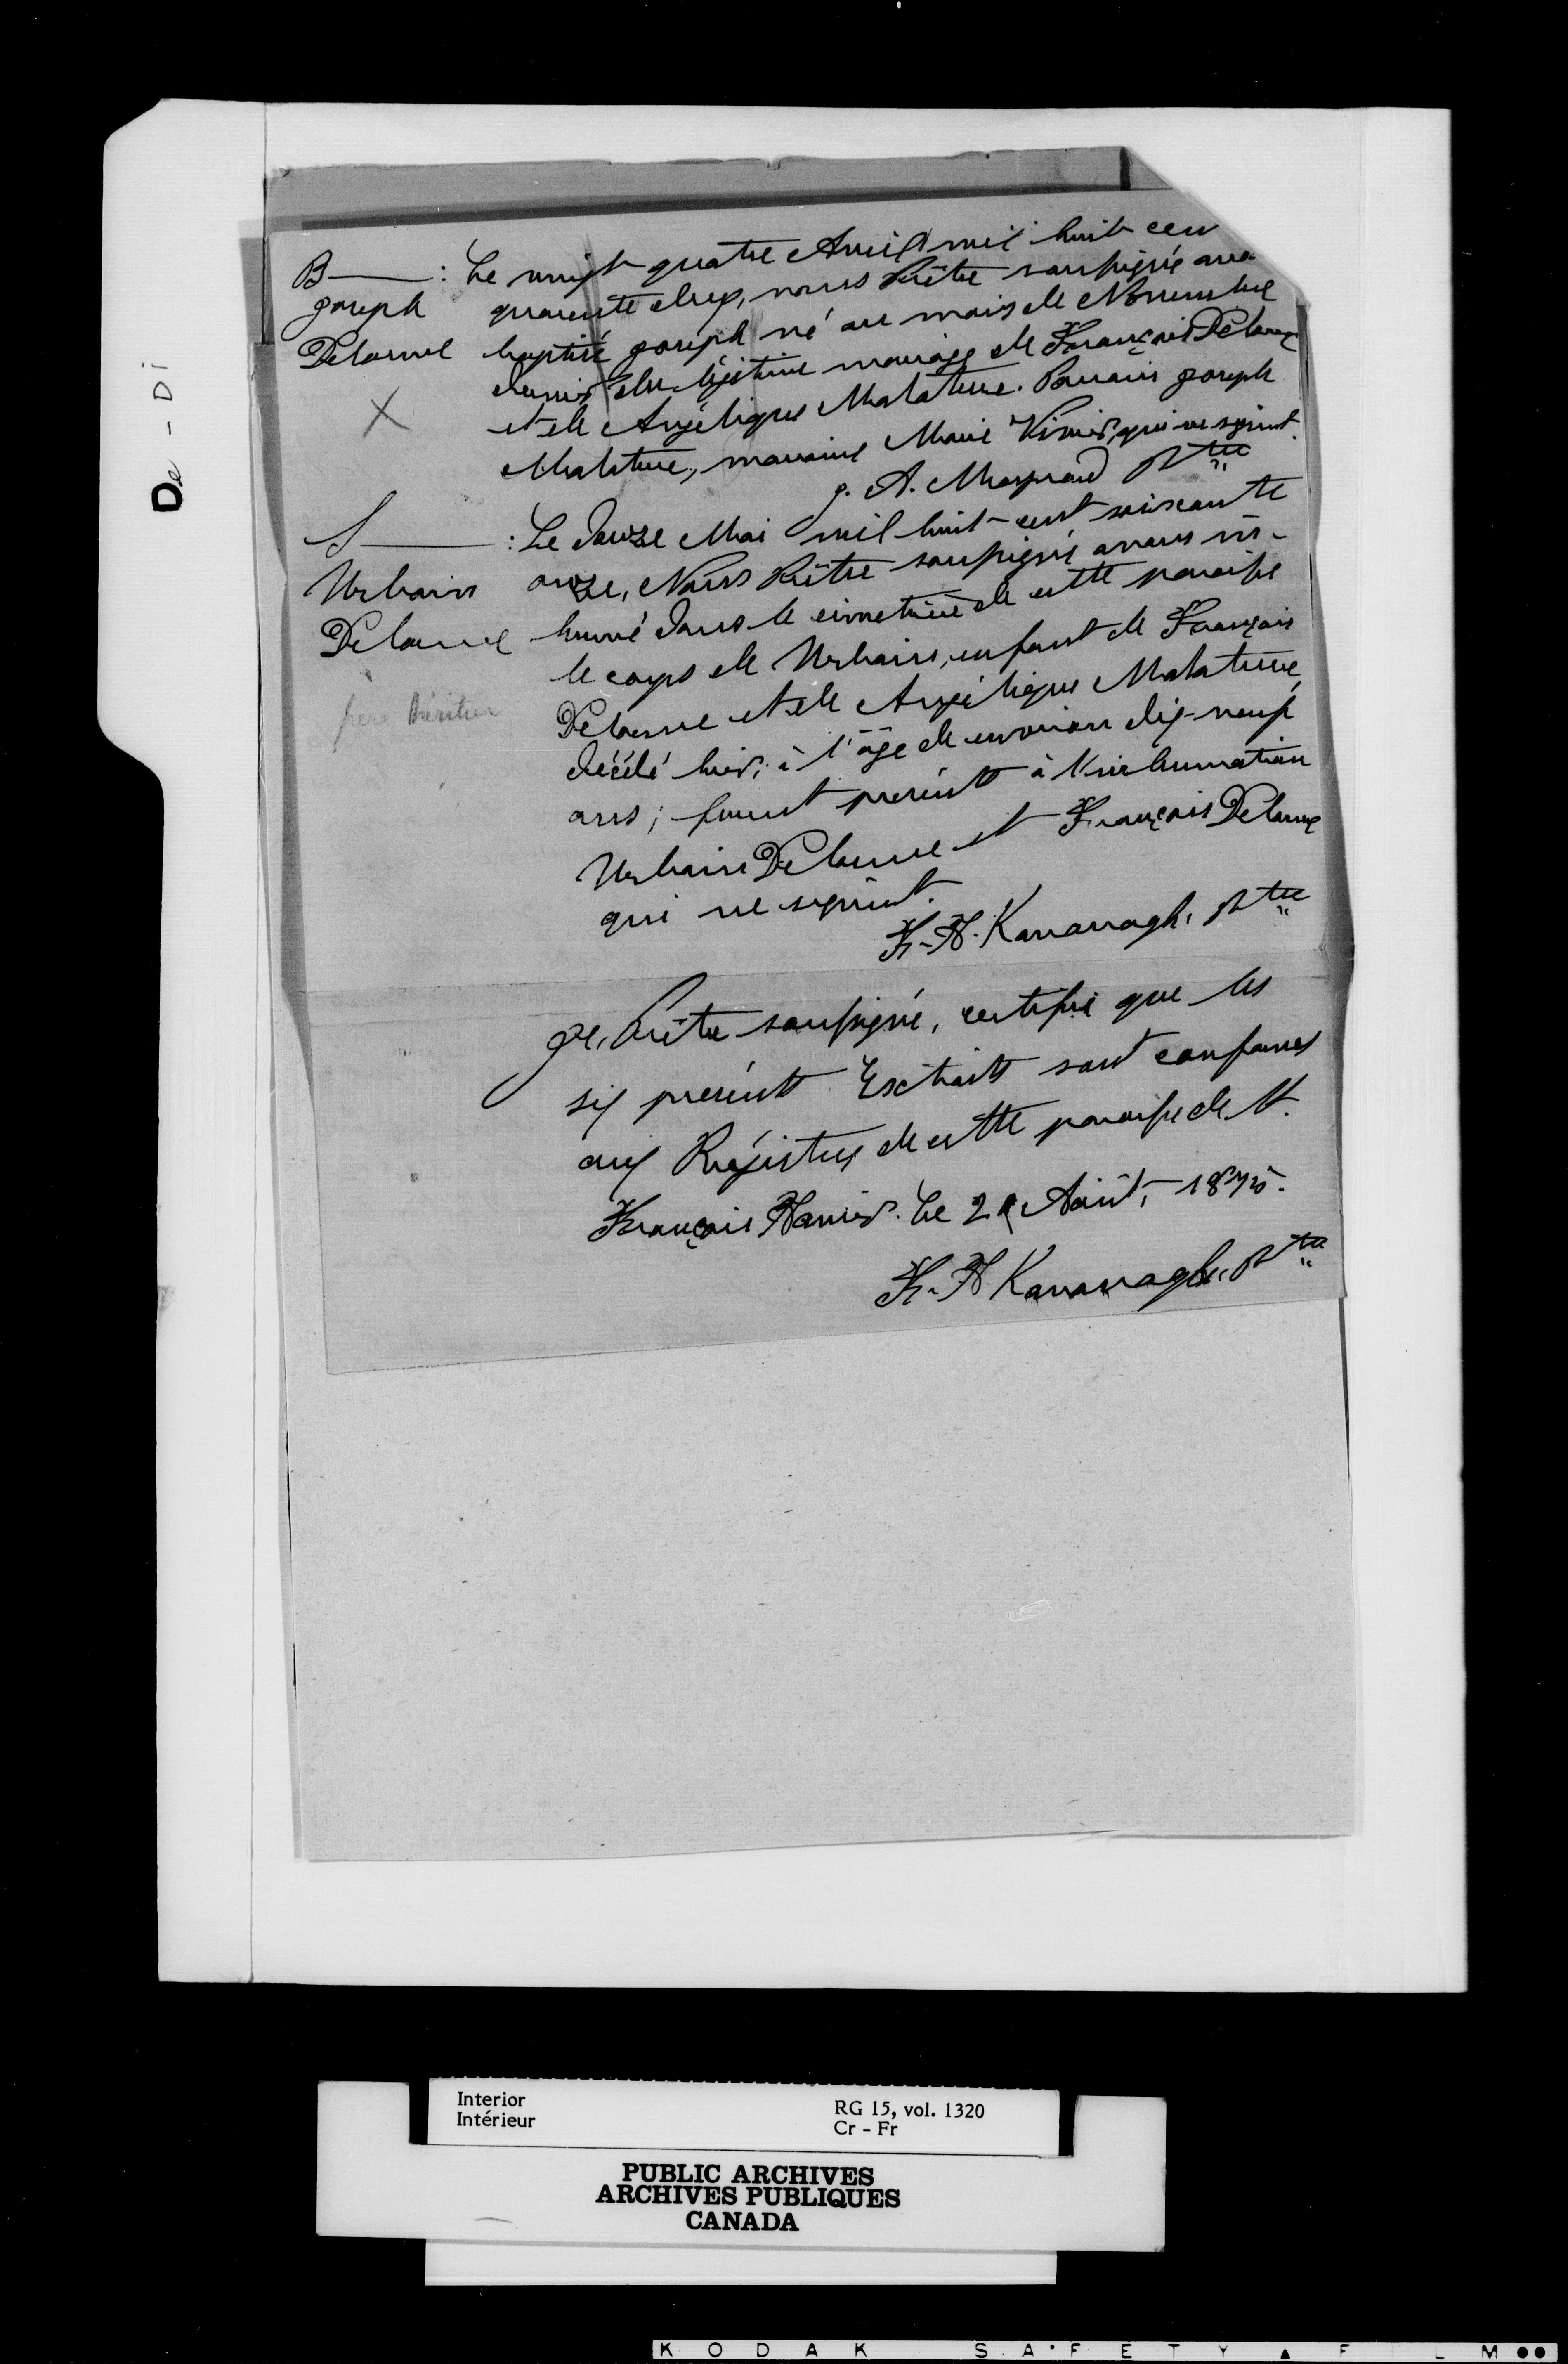 De - Di
B——— : Le vingt quatre Avril mil huit cen
Joseph quarante deux, nous Prêtre soussigné avo
Delorme baptisé Joseph né au mois de Novembre
dernier du légitime mariage de François Delorme
X et de Angélique Malaterre. Parrain Joseph
Malaterre, marraine Marie Vivier, qui ne signent.
J. A. Mayrand Ptre
S——— : Le douze Mai mil huit-cent soixante
Urbain onze, Nous Prêtre soussigné avons in-
Delorme humé dans le cimetière de cette paroisse
le corps de Urbain, enfant de François
père héritier Delorme et de Angélique Malaterre,
décédé hier, à l'âge de environ dix-neuf
ans; furent présents à l'inhumation
Urbain Delorme et François Delorme
qui ne signent.
F.-X. Kavanagh. Ptre
Je, Prêtre soussigné, certifie que les
six présents Extraits sont conformes
aux Régistres de cette paroisse de St.
François Xavier. Le 2 Août, 1875.
F.-X Kavanagh. Ptre
Interior
Intérieur
RG 15, vol. 1320
Cr - Fr
PUBLIC ARCHIVES
ARCHIVES PUBLIQUES
CANADA
KODAK SAFETY FILM